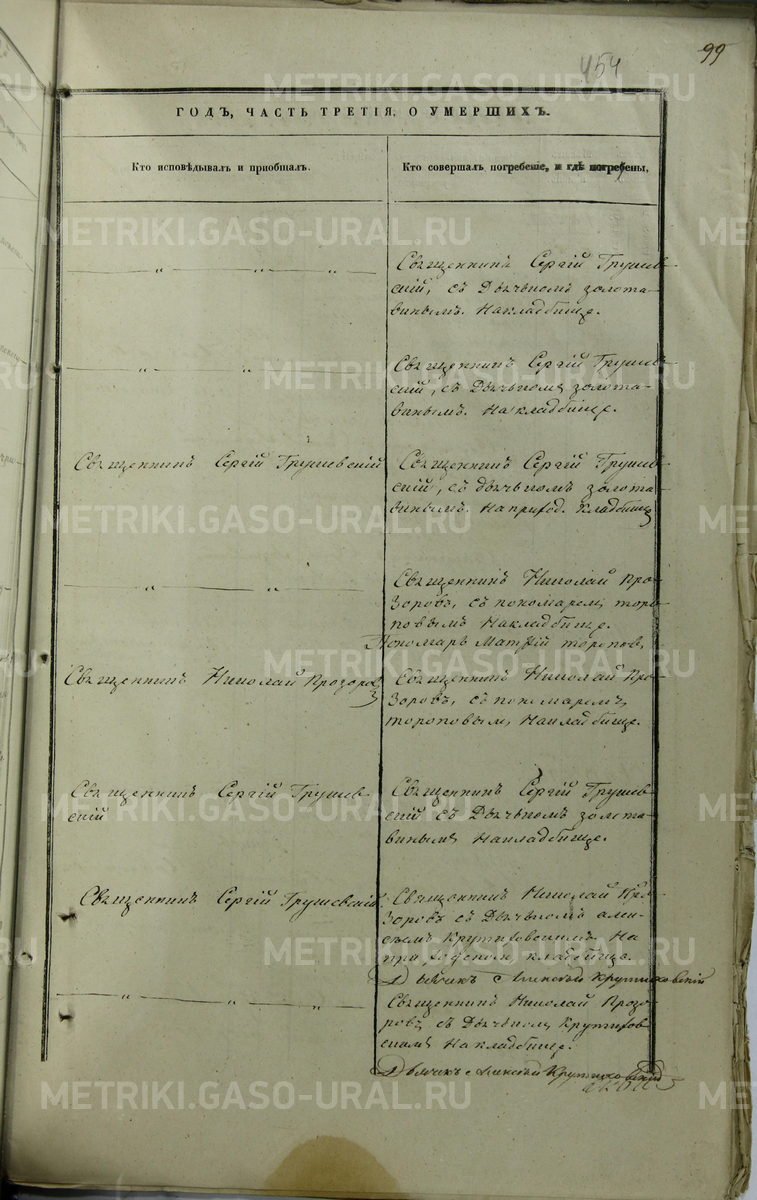 99
454
ГОДЪ, ЧАСТЬ ТРЕТІЯ, О УМЕРШИХЪ.
Кто исповѣдывалъ и приобщалъ.
Кто совершалъ погребеніе, и гдѣ погребены,
Священникъ Сергій Грушев-
скій, съ Дьячькомъ золота-
винымъ. На кладбище.
Священникъ Сергій Грушев-
скій, съ Дьячькомъ золота-
винымъ. На кладбище.
Священникъ Сергій Грушевскій
Священникъ Сергій Грушев-
скій, съ дьячькомъ золота-
винымъ. На приход. кладбище
Священникъ Николай Про-
зоровъ, съ пономаремъ торо-
повымъ На кладбище.
Пономарь торопов,
Священникъ Николай Прозоровъ
Священникъ Николай Про-
зоровъ, съ пономаремъ
тороповым, На кладбище.
Священникъ Сергій Грушев-
скій
Священникъ Сергій Грушев-
скій съ Дьячькомъ золота-
винымъ На кладбище.
Священникъ Сергій Грушевскій
Священникъ Николай Про-
зоровъ съ Дьячькомъ алек-
сѣемъ Крутиховскимъ На
приходском, кладбище.
Дьячикъ Алексѣй Крутиховскій
Священникъ Николай Прозо-
ровъ, съ Дьячькомъ Крутихов-
скимъ На кладбище.
Дьячикъ Алексѣй Крутиховскій
METRIKI.GASO-URAL.RU